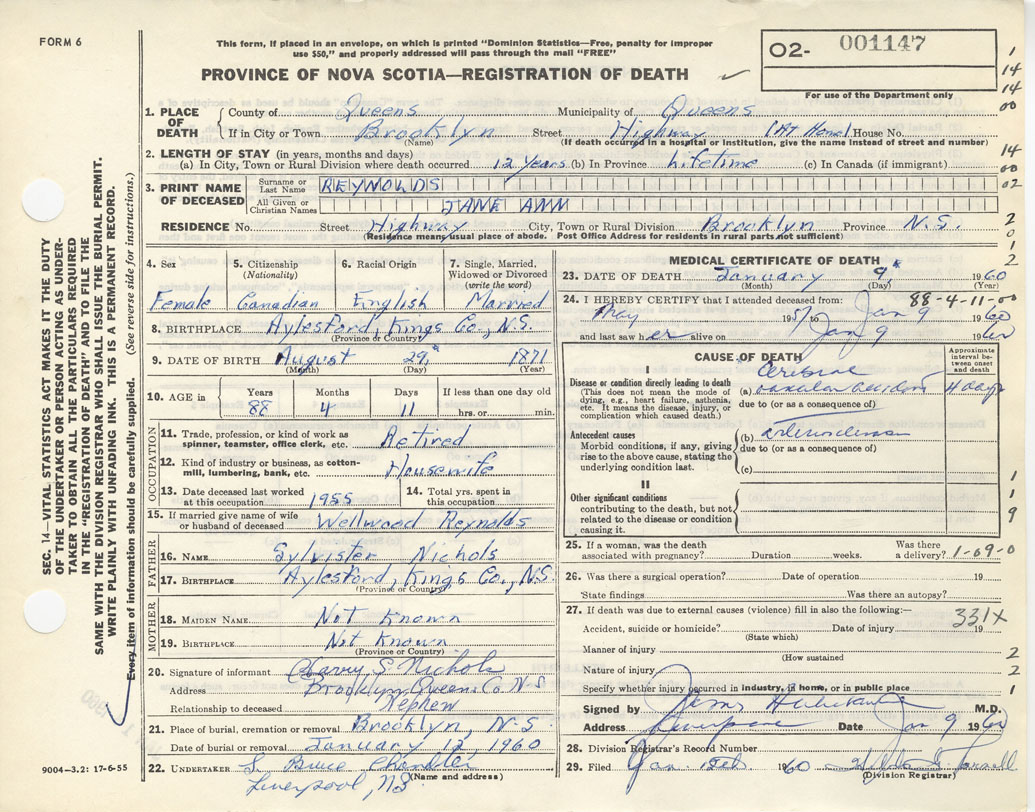 FORM 6
This form, if placed in an envelope, on which is printed "Dominion Statistics—Free, penalty for improper
use $50," and properly addressed will pass through the mail "FREE"
PROVINCE OF NOVA SCOTIA—REGISTRATION OF DEATH
O2- 001147
For use of the Department only
1
14
14
00
14
00
02
2
0
1
2
SEC. 14—VITAL STATISTICS ACT MAKES IT THE DUTY
OF THE UNDERTAKER OR PERSON ACTING AS UNDER-
TAKER TO OBTAIN ALL THE PARTICULARS REQUIRED
IN THE "REGISTRATION OF DEATH" AND TO FILE THE
SAME WITH THE DIVISION REGISTRAR WHO SHALL ISSUE THE BURIAL PERMIT.
WRITE PLAINLY WITH UNFADING INK. THIS IS A PERMANENT RECORD.
Every item of information should be carefully supplied. (See reverse side for instructions.)
1. PLACE OF DEATH
County of Queens Municipality of Queens
If in City or Town Brooklyn Street Highway (At Home) House No.
(Name) (If death occurred in a hospital or institution, give the name instead of street and number)
2. LENGTH OF STAY (in years, months and days)
(a) In City, Town or Rural Division where death occurred 12 years (b) In Province Lifetime (c) In Canada (if immigrant)
3. PRINT NAME OF DECEASED
Surname or Last Name REYNOLDS
All Given or Christian Names JANE ANN
RESIDENCE No. Street Highway City, Town or Rural Division Brooklyn Province N.S.
(Residence means usual place of abode. Post Office Address for residents in rural parts not sufficient)
4. Sex 5. Citizenship 6. Racial Origin 7. Single, Married,
(Nationality) Widowed or Divorced
(write the word)
Female Canadian English Married
8. BIRTHPLACE Aylesford, Kings Co., N.S.
(Province or Country)
9. DATE OF BIRTH August 29, 1871
(Month) (Day) (Year)
10. AGE in Years Months Days If less than one day old
88 4 11 hrs. or min.
OCCUPATION
11. Trade, profession, or kind of work as
spinner, teamster, office clerk, etc. Retired
12. Kind of industry or business, as cotton-
mill, lumbering, bank, etc. Housewife
13. Date deceased last worked at this occupation 1955 14. Total yrs. spent in this occupation
15. If married give name of wife
or husband of deceased Wellwood Reynolds
FATHER
16. NAME Sylvister Nichols
17. BIRTHPLACE Aylesford, Kings Co., N.S.
(Province or Country)
MOTHER
18. MAIDEN NAME Not Known
19. BIRTHPLACE Not Known
(Province or Country)
20. Signature of informant Harry S. Nichols
Address Brooklyn Queens Co N-S
Relationship to deceased Nephew
21. Place of burial, cremation or removal Brooklyn, N-S
Date of burial or removal January 12, 1960
22. UNDERTAKER S. Bruce Chandler
Liverpool, NS (Name and address)
9004-3.2: 17-6-55
MEDICAL CERTIFICATE OF DEATH
23. DATE OF DEATH January 9 1960
(Month) (Day) (Year)
88-4-11-00
24. I HEREBY CERTIFY that I attended deceased from:
May 1957 to Jan 9 1960
and last saw her alive on Jan 9 1960
CAUSE OF DEATH
Approximate interval between onset and death
I
Disease or condition directly leading to death
(This does not mean the mode of
dying, e.g., heart failure, asthenia,
etc. It means the disease, injury, or
complication which caused death.)
(a) Cerebral vascular accident 4 days
due to (or as a consequence of)
Antecedent causes
Morbid conditions, if any, giving
rise to the above cause, stating the
underlying condition last.
(b)
due to (or as a consequence of)
(c)
II
Other significant conditions
contributing to the death, but not
related to the disease or condition
causing it.
1
1
9
25. If a woman, was the death
associated with pregnancy? Duration weeks. Was there a delivery? 1-69-0
26. Was there a surgical operation? Date of operation 19
State findings Was there an autopsy?
27. If death was due to external causes (violence) fill in also the following:—
331X
Accident, suicide or homicide? Date of injury 19
(State which)
Manner of injury 2
(How sustained
Nature of injury 2
Specify whether injury occurred in industry, in home, or in public place 1
Signed by M.D.
Address Liverpool Date Jan 9 1960
28. Division Registrar's Record Number
29. Filed Jan. 12th 1960
(Division Registrar)